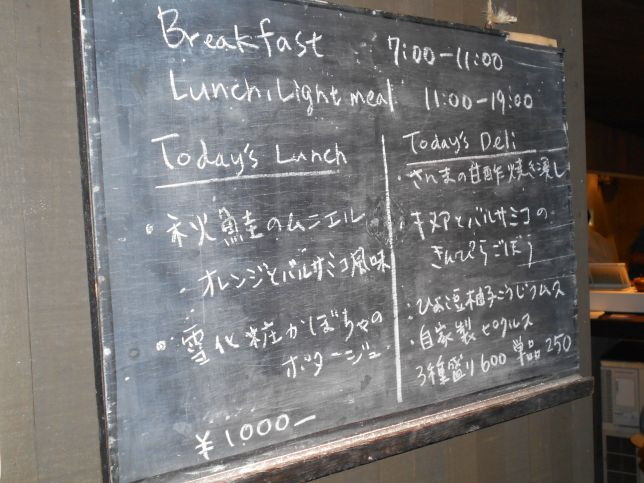 Breakfast 7:00-11:00
Lunch, Light meal 11:00-19:00
Today's Lunch
・秋鮭のムニエル
オレンジとバルサミコ風味
・雪化粧かぼちゃの
ポタージュ
¥1000-
Today's Deli
・さんまの甘酢焼き浸し
・キヌアとバルサミコの
きんぴらごぼう
・ひよこ豆柚子こうじフムス
・自家製ピクルス
3種盛り600 単品250